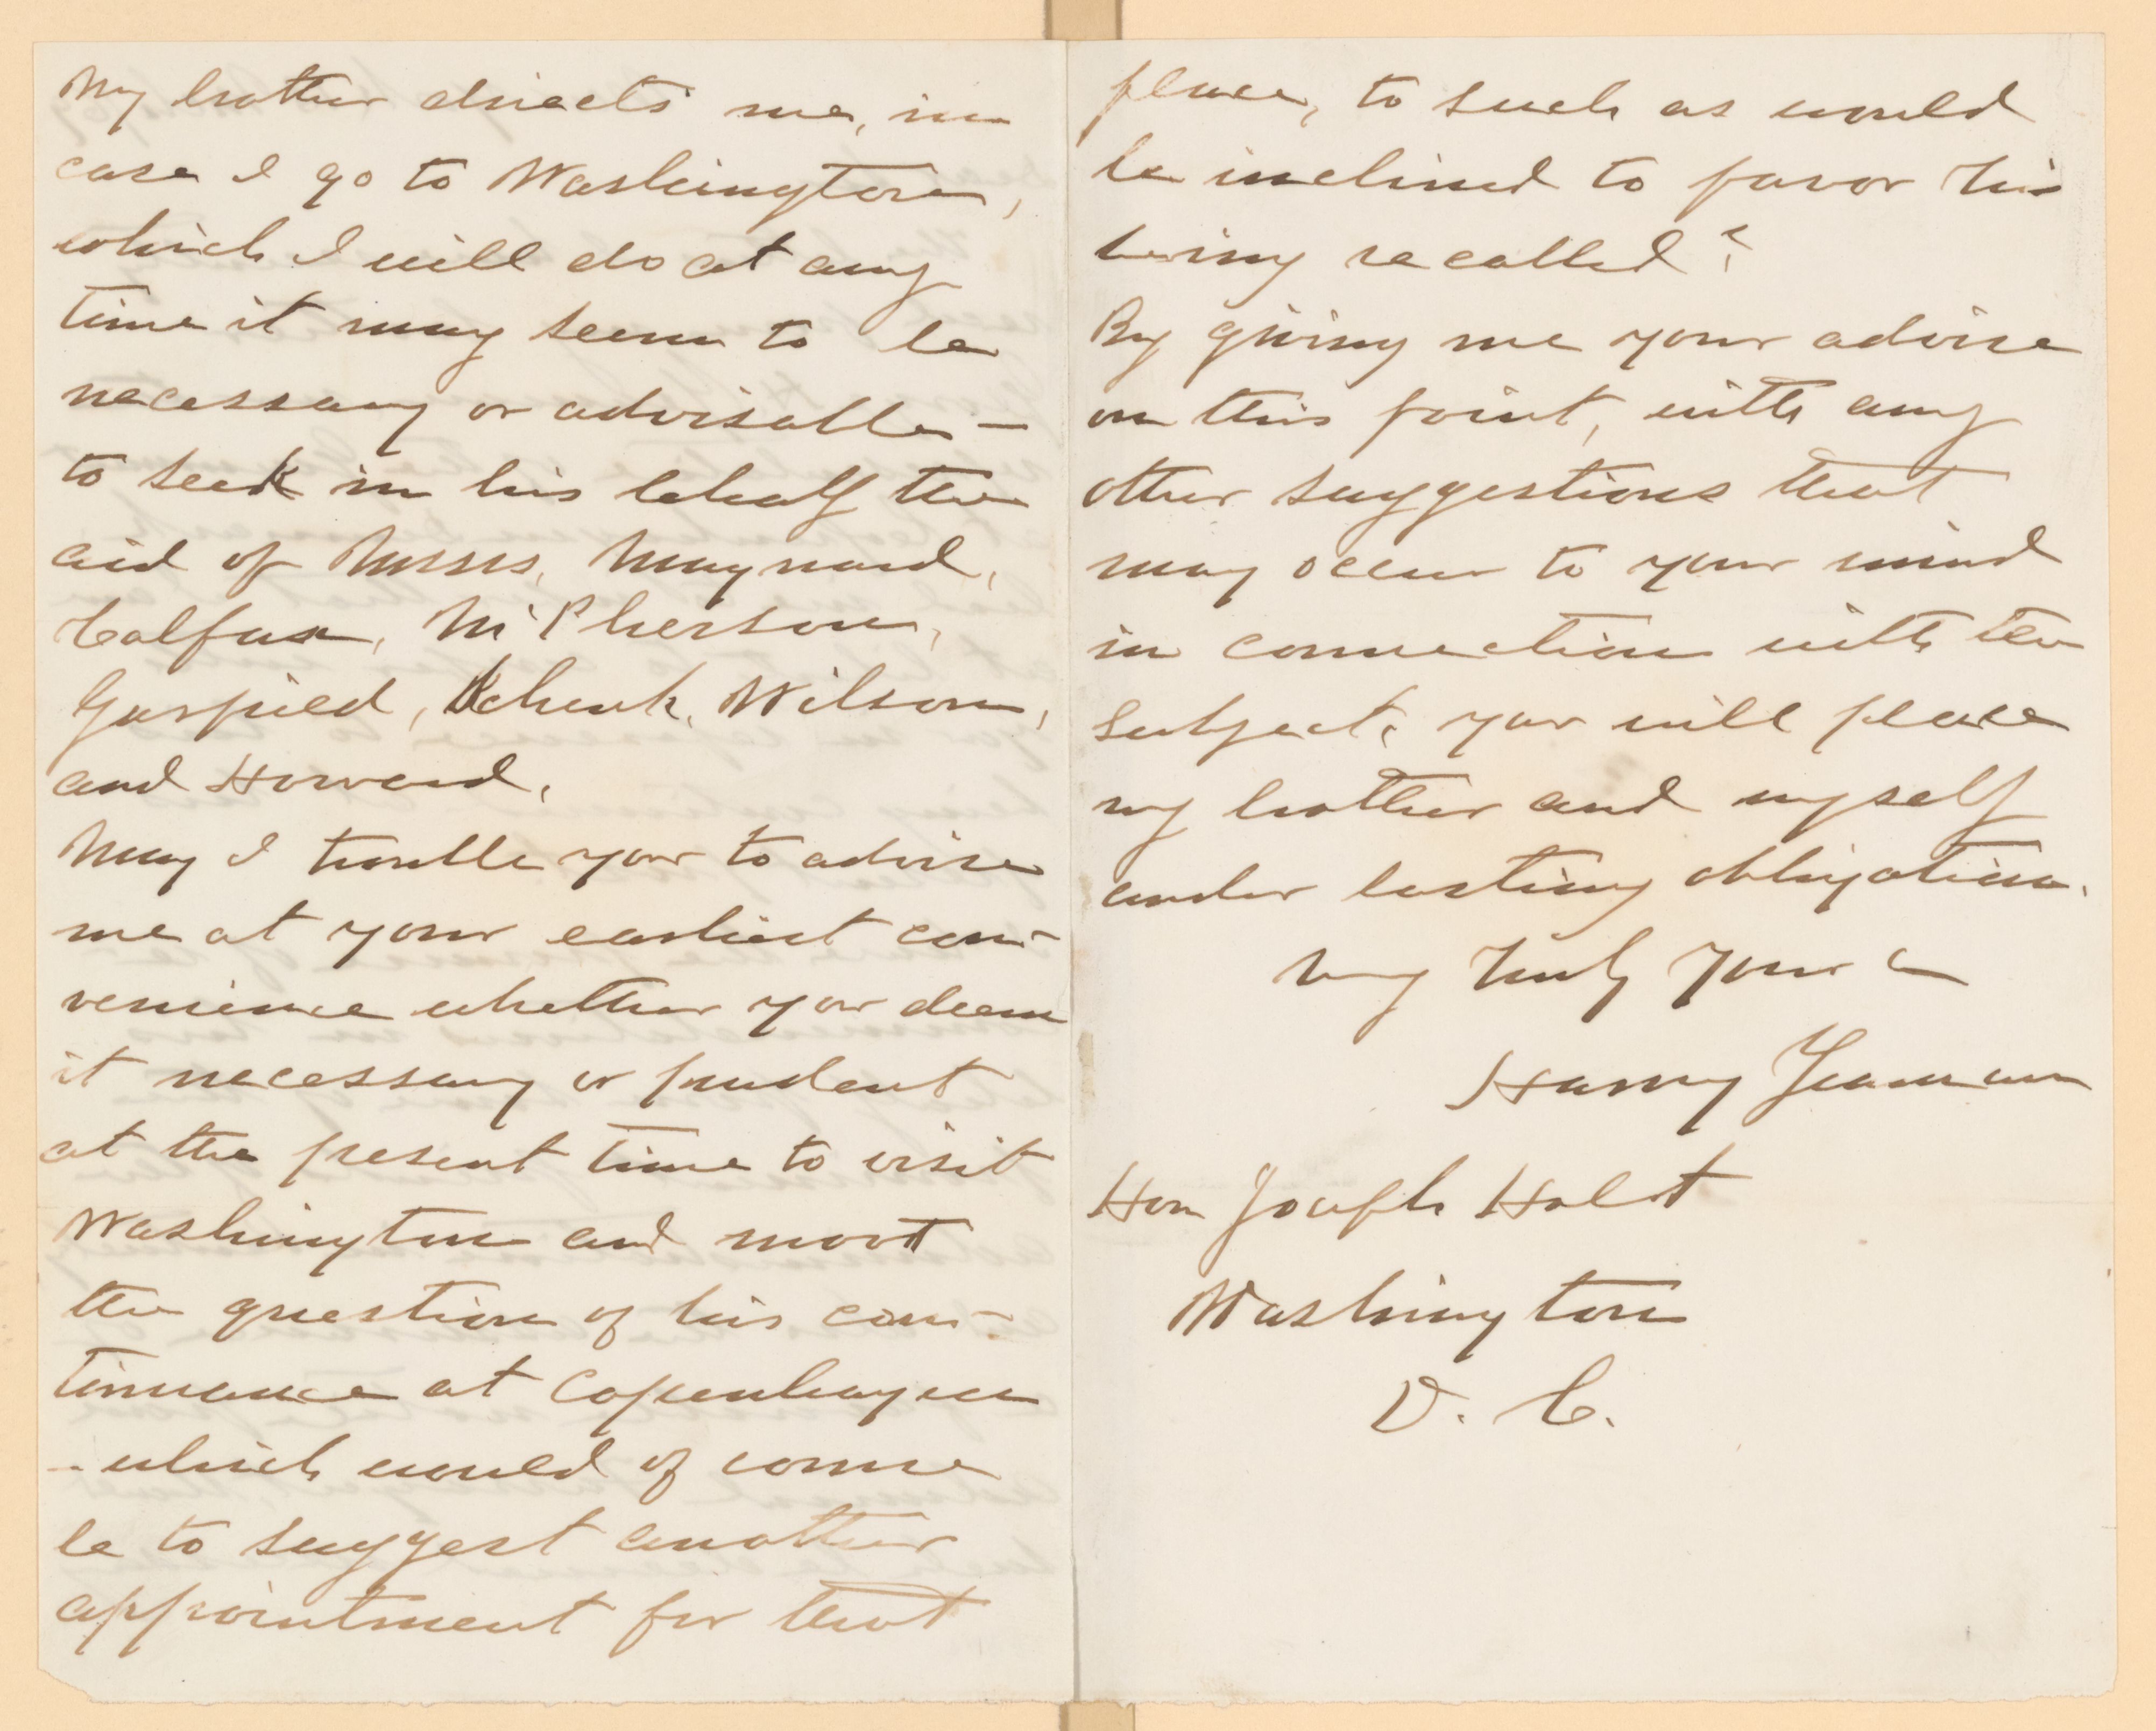 My brother directs me, in
case I go to Washington,
which I will do at any
time it may seem to be
necessary or advisable —
to seek in his behalf the
aid of Messrs. Maynard,
Colfax, McPherson,
Garfield, Schenk, Wilson,
and Howard.
May I trouble you to advise
me at your earliest con-
venience whether you deem
it necessary or prudent
at the present time to visit
Washington and moot
the question of his con-
tinuance at Copenhagen
- which would of course
be to suggest another
appointment for that
place, to such as would
be inclined to favor his
being recalled?
By giving me your advise
on this point, with any
other suggestions that
may occur to your mind
in connection with the
subject, you will place
my brother and myself
under lasting obligation.
Very Truly Yours
Harry Yeaman
Hon Joseph Holt
Washington
D. C.